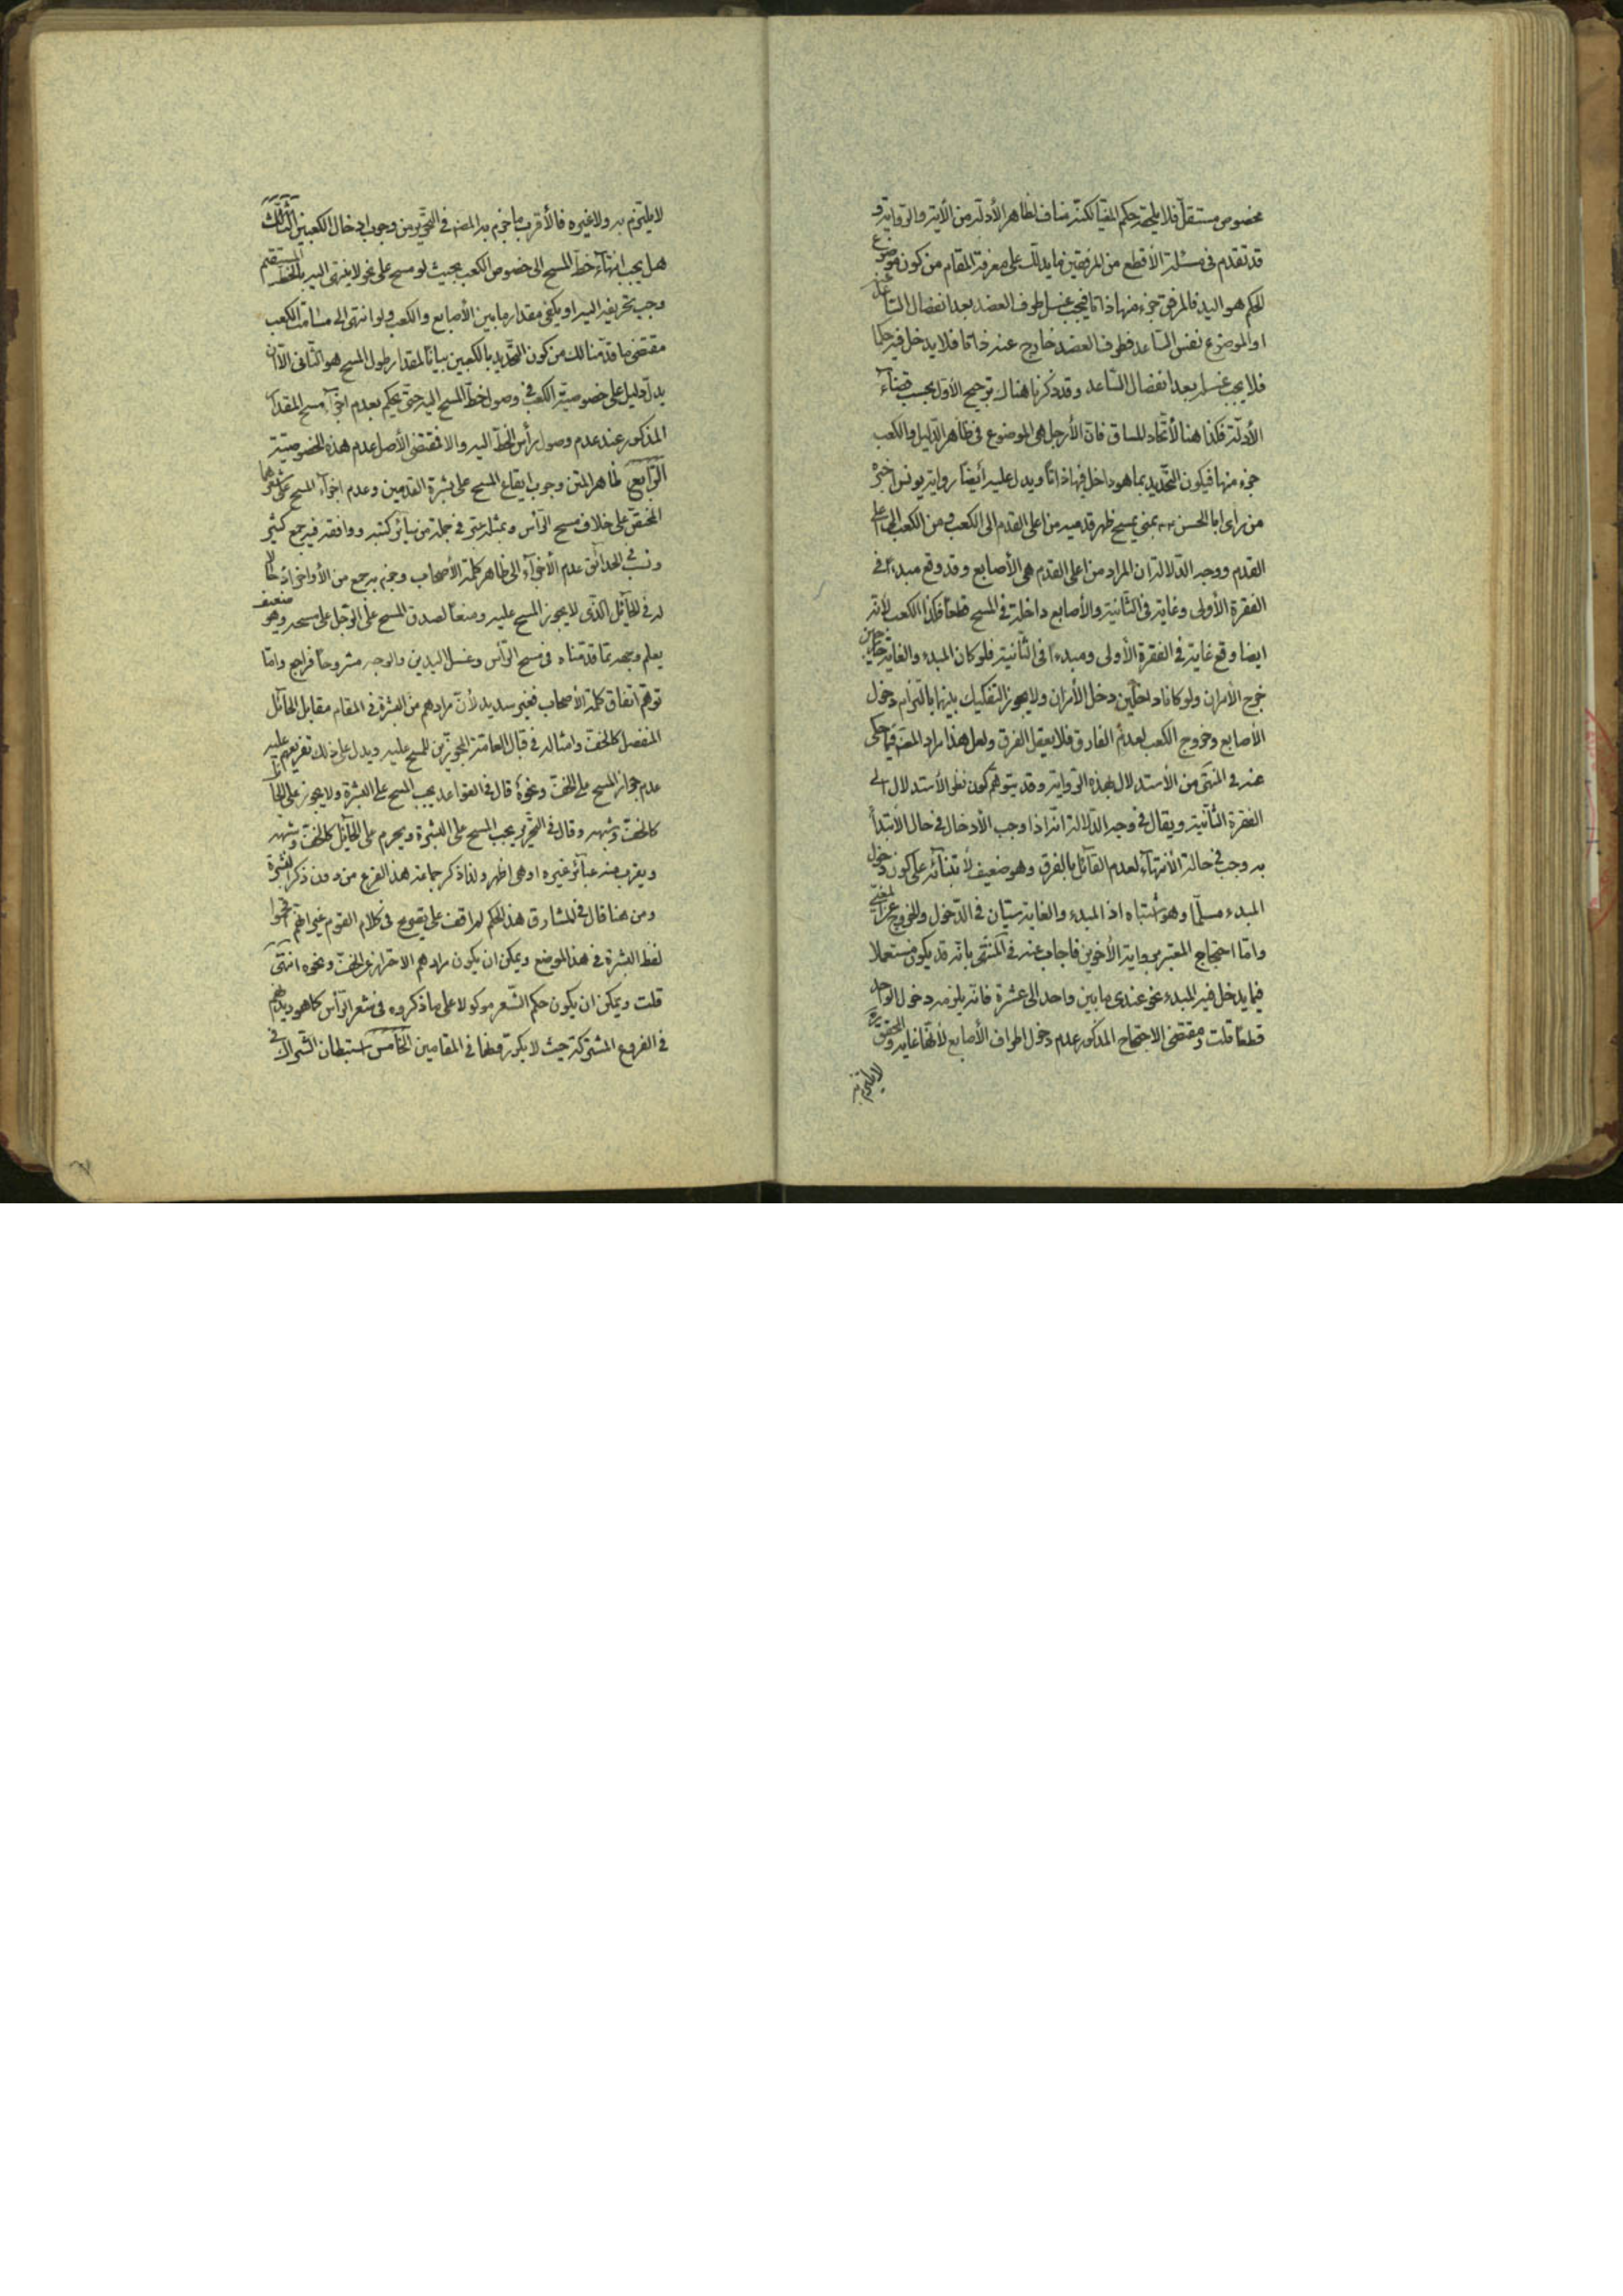 مخصوص مستقلّ فلا يلحقه حكم المغيّا لكنّه مناف لظاهر الأدلّة من الآية والرّواية و
قد تقدم في مسئلة الأقطع من المرفقين ما يدلّك على معرفة المقام من كون موضوع
الحكم هو اليد فالمرفق جزء منها ذاتا فيجب غسل طرف العضد بعد انفصال السّاعد
او الموضوع نفس السّاعد فطرف العضد خارج عنه ذاتا فلا يدخل فيه حكما
فلا يجب غسله بعد انفصال السّاعد وقد ذكرنا هناك ترجيح الأوّل بحسب قضاء
الأدلّة فكذا هنا لاتّحاد المساق فانّ الأرجل هى الموضوع في ظاهر الدّليل والكعب
جزء منها فيكون التّحديد بما هو داخل فيها ذاتا ويدل عليه أيضا رواية يونس اخبره
من راى ابا الحسن ع بمنى يمسح ظهر قدميه من اعلى القدم الى الكعب ومن الكعب الى اعلى
القدم ووجه الدّلالة ان المراد من اعلى القدم هى الأصابع وقد وقع مبدءاً في
الفقرة الأولى وغاية في الثّانية والأصابع داخلة في المسح قطعاً فكذا الكعب لأنه
ايضا وقع غاية في الفقرة الأولى ومبدءاً في الثّانية فلو كان المبدء والغاية خارجين
خرج الأمران ولو كانا داخلين دخل الأمران ولا يجوز التفكيك بينهما بالتزام دخول
الأصابع وخروج الكعب لعدم الفارق فلا يعقل الفرق ولعل هذا مراد المصنف فيما حكى
عنه في المنتهى من الأستدلال بهذه الرّواية وقد يتوهّم كون نظر الأستدلال الى
الفقرة الثّانية ويقال في وجه الدّلالة انّه اذا وجب الأدخال في حال الأبتداء
به وجب في حالة الأنتهاء لعدم القائل بالفرق وهو ضعيف لأبتنائه على كون دخول
المبدء مسلّما وهو اشتباه اذ المبدء والغاية سيّان في الدّخول والخروج عن المغيّى
وامّا احتجاج المعتبر برواية الأخوين فاجاب عنه في المنتهى بانّه قد يكون مستعملا
فيما يدخل فيه المبدء نحو عندى ما بين واحد الى عشرة فانّه يلزمه دخول الواحد
قطعا قلت ومقتضى الاحتجاج المذكور عدم دخول اطراف الأصابع لأنّها غاية والمحقّق
لا يلتزم به
لا يلتزم به ولا غيره فالأقرب ما جزم به المصنف في التحرير من وجوب ادخال الكعبين الثّالث
هل يجب انتهاء خطّ المسح الى خصوص الكعب بحيث لو مسح على نحو لا ينتهى اليه بالخطّ المستقيم
وجب تحريفه اليه او يكفى مقدار ما بين الأصابع والكعب ولو انتهى الى مسامت الكعب
مقتضى ما قدّمنا لك من كون التّحديد بالكعبين بيانا لمقدار طول المسح هو الثّانى الّا ان
يدلّ دليل على خصوصيّة الكعب في وصول خطّ المسح اليه حتى يحكم بعدم اجزاء مسح المقدار
المذكور عند عدم وصول رأس الخطّ اليه والا فمقتضى الأصل عدم هذه الخصوصيّة
الرّابع ظاهر المتن وجوب ايقاع المسح على بشرة القدمين وعدم اجزاء المسح على شعرها
المختصّ على خلاف مسح الرّأس وبمثله عبّر في جملة من سائر كتبه ووافقه فيه جمع كثير
ونسب في الحدائق عدم الأجزاء الى ظاهر كلمة الأصحاب وجزم به جمع من الأواخر ادخالا
له في الحائل الّذى لا يجوز المسح عليه ومنعا لصدق المسح على الرّجل على مسحه وهو ضعيف
يعلم وجهه بما قدّمناه في مسح الرّأس وغسل اليدين والوجه مشروحا فراجع وامّا
توهّم اتفاق كلمة الأصحاب فغير سديد لأنّ مرادهم من البشرة في المقام مقابل الحائل
المنفصل كالخفّ وامثاله في قبال العامّة المجوّزين للمسح عليه ويدل على ذلك تفريعهم عليه
عدم جواز المسح على الخفّ ونحوه قال في القواعد يجب المسح على البشرة ولا يجوز على الحائل
كالخفّ وشبهه وقال في التّحرير يجب المسح على البشرة ويحرم على الحائل كالخفّ وشبهه
ويقرب منه عبائر غيره او هى اظهر ولذا ذكر جماعة هذا الفرع من دون ذكر البشرة
ومن هنا قال في المشارق هذا الحكم لم اقف على تصريح في كلام القوم غير انّهم اقحموا
لفظ البشرة في هذا الموضع ويمكن ان يكون مرادهم الاحتراز عن الخفّ ونحوه انتهى
قلت ويمكن ان يكون حكم الشّعر موكولا على ما ذكروه في شعر الرّأس كما هو ديدنهم
في الفروع المشتركة حيث لا يكررونها في المقامين الخامس استبطان الشّراك في